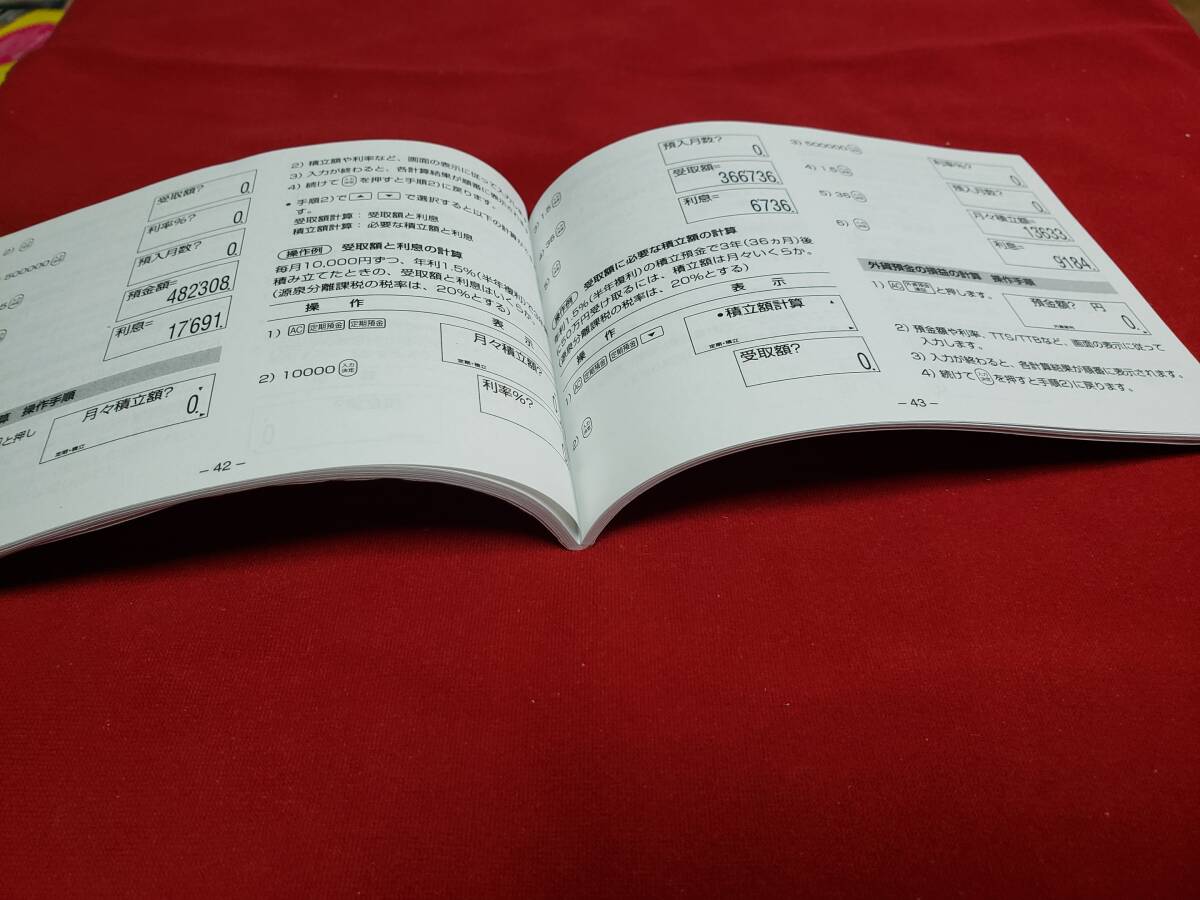 受取額? 0.
2)
利率%? 0.
500000
預入月数? 0.
預金額=
482308.
利息=
17'691.
算 操作手順
と押し
月々積立額?
0.
定期・積立
− 42 −
2) 積立額や利率など、画面の表示に従って入力
3) 入力が終わると、各計算結果が順番に表示され
4) 続けて 入力決定 を押すと手順2)に戻ります。
• 手順2)で ▲ ▼ で選択すると以下の計算が
す。
受取額計算: 受取額と利息
積立額計算: 必要な積立額と利息
操作例 受取額と利息の計算
毎月10,000円ずつ、年利1.5%(半年複利)で3
積み立てたときの、受取額と利息はいくらか。
(源泉分離課税の税率は、20%とする)
操 作 表 示
1) AC 定期預金 定期預金
月々積立額?
定期・積立
2) 10000 入力決定
利率%?
預入月数?
0.
3) 1.5
受取額=
366736.
36
利息=
6736.
5)
操作例 受取額に必要な積立額の計算
年利1.5%(半年複利)の積立預金で3年(36ヵ月)後
に50万円受け取るには、積立額は月々いくらか。
(源泉分離課税の税率は、20%とする)
操 作 表 示
1) AC 定期預金 定期預金 ▼
•積立額計算
定期・積立
2)
受取額?
0.
3) 500000
利率%? 0.
4) 1.5
預入月数? 0.
5) 36
月々積立額=
13633.
6)
利息=
9184.
外貨預金の損益の計算 操作手順
1) AC と押します。
預金額? 円
0.
2) 預金額や利率、TTS/TTBなど、画面の表示に従って
入力します。
3) 入力が終わると、各計算結果が順番に表示されます。
4) 続けて 入力決定 を押すと手順2)に戻ります。
− 43 −